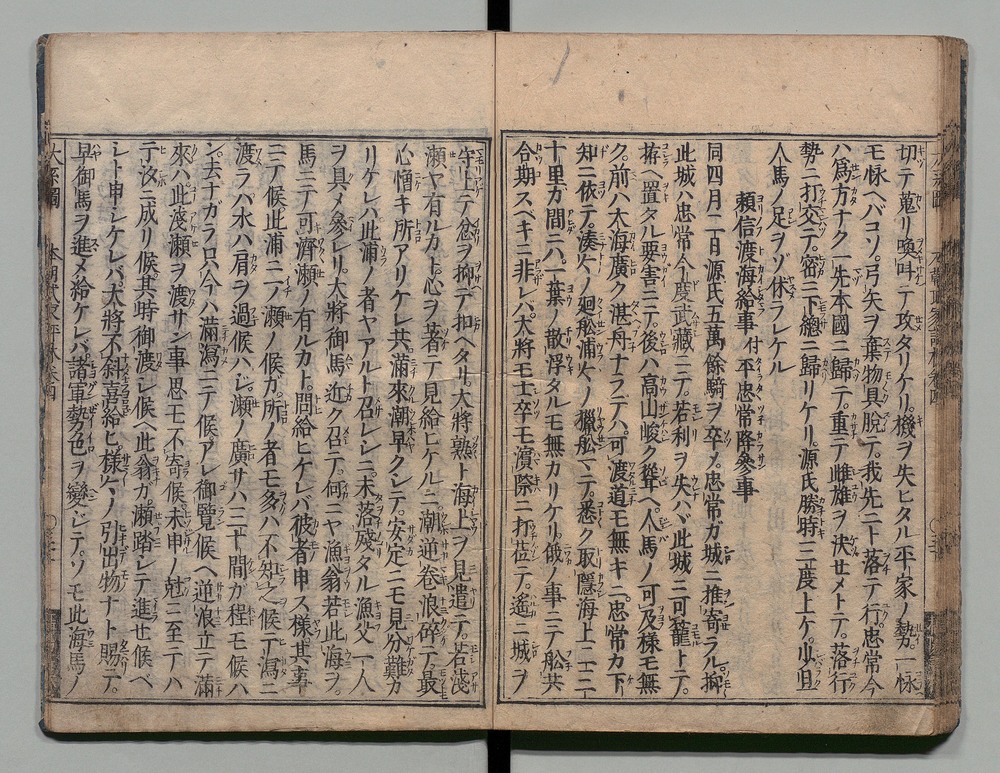 切テ蒐リ喚叫テ攻タリケリ。機ヲ失ヒタル平家ノ勢。一怺
モ怺ヘバコソ。弓矢ヲ棄物具脱テ。我先ニト落テ行。忠常今
ハ爲方ナク一先本國ニ歸テ。重テ雌雄ヲ決セメトテ。落行
勢ニ打交テ。密ニ下總ニ歸リケリ。源氏勝時三度上ケ。少旦
人馬ノ足ヲゾ休ラレケル
頼信渡海給事付平忠常降參事
同四月二日源氏五萬餘騎ヲ卒メ。忠常ガ城ニ推寄ラル。抑
此城ハ忠常今度武藏ニテ。若利ヲ失ハヾ此城ニ可籠トテ。
拵ヘ置タル要害ニテ。後ハ高山峻ク聳ヘ。人馬ノ可及様モ無
ク。前ハ大海廣ク湛舟ナラデハ。可渡道モ無キニ。忠常カ下
知ニ依テ。湊々ノ廻舩浦々ノ獵舩マテ。悉ク取隱海上二三
十里カ間ニハ。一葉ノ散浮タルモ無カリケリ。俄ノ事ニテ舩共
合期スヘキニ非レバ。大將モ士卒モ濱際ニ打莅テ。遙ニ城ヲ
守上テ忿ヲ抑デ扣ヘタリ。大將熟ト海上ヲ見遣テ。若淺
瀬ヤ有ルカト。心ヲ著テ見給ヒケルニ。潮逆卷浪碎テ。最
心憎キ所アリケレ共。滿來潮早クシテ。安定ニモ見分難カ
リケレバ。此浦ノ者ヤアルト召レシニ。末落殘タル漁父一人
ヲ具メ參レリ。大將御馬近ク召テ。何ニヤ漁翁若此海ヲ。
馬ニテ可濟瀬ノ有ルカト。問給ヒケレバ彼者申ス様。其事
ニテ候此浦ニ一ノ瀬ノ候ガ。所ノ者モ多ハ不知之候テ。瀉ニ
渡ラバ水ハ肩ヲ過候ハベシ。瀬ノ廣サハ三十間カ程モ候ハ
ン。去ナガラ只今ハ滿瀉ニテ候アレ御覽候ヘ逆浪立テ滿
來ハ此淺瀬ヲ渡サン事思モ不寄候。未申ノ尅ニ至テハ
干汐ニ成リ候。其時御渡シ候ヘ此翁ガ瀬踏シテ進せ候ベ
シト申シケレバ。大將不斜喜給ヒ。様々ノ引出物ナト賜テ。
早御馬ヲ進メ給ケレバ。諸軍勢色ヲ變シテ。ソモ此海馬ノ